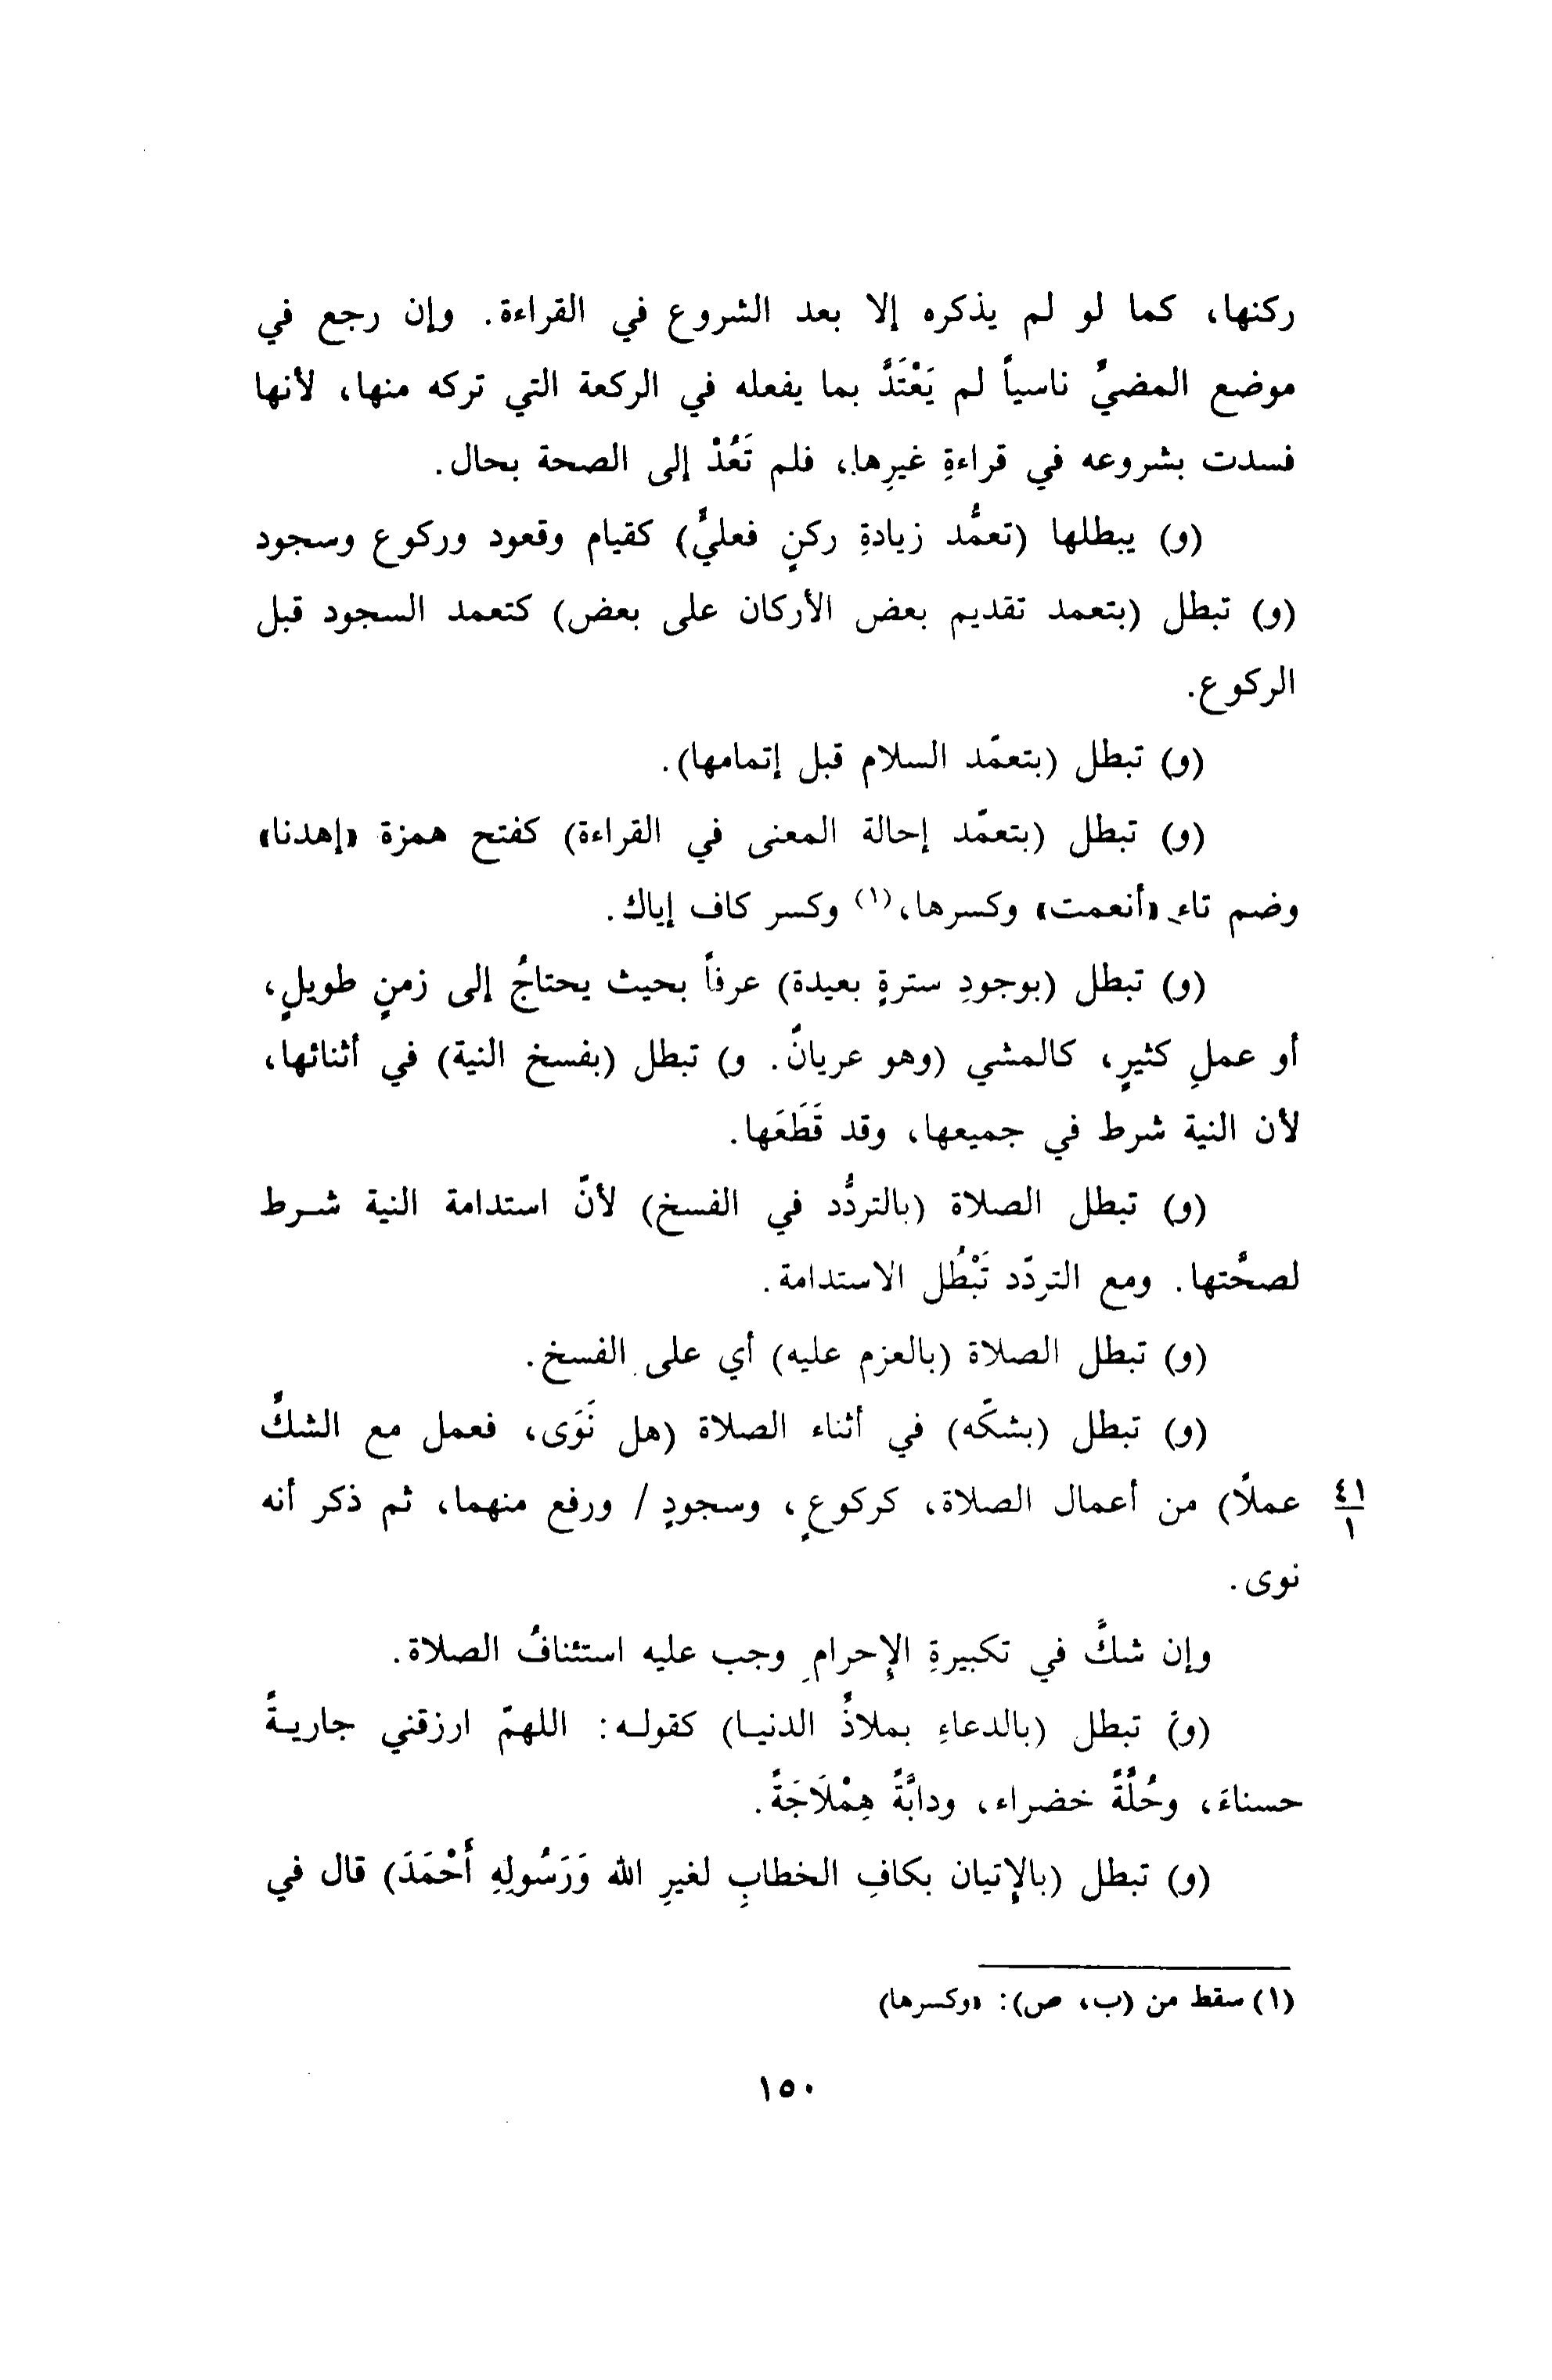 ركنها، كما لو لم يذكره إلا بعد الشروع في القراءة. وإن رجع في
موضع المضيِّ ناسياً لم يَعْتَدَّ بما يفعله في الركعة التي تركه منها، لأنها
فسدت بشروعه في قراءةِ غيرِها، فلم تَعُدْ إلى الصحة بحال.
(و) يبطلها (تعمُّد زيادةِ ركنٍ فعليٍّ) كقيام وقعود وركوع وسجود
(و) تبطل (بتعمد تقديم بعض الأركان على بعض) كتعمد السجود قبل
الركوع.
(و) تبطل (بتعمّد السلام قبل إتمامها).
(و) تبطل (بتعمّد إحالة المعنى في القراءة) كفتح همزة «إهدنا»
وضم تاء «أنعمت» وكسرها،(١) وكسر كاف إياك.
(و) تبطل (بوجودِ سترةٍ بعيدة) عرفاً بحيث يحتاجُ إلى زمنٍ طويلٍ،
أو عملٍ كثيرٍ، كالمشي (وهو عريانٌ. و) تبطل (بفسخ النية) في أثنائها،
لأن النية شرط في جميعها، وقد قَطَعَها.
(و) تبطل الصلاة (بالتردُّد في الفسخ) لأنّ استدامة النية شرط
لصحَّتها. ومع التردّد تَبْطُل الاستدامة.
(و) تبطل الصلاة (بالعزم عليه) أي على الفسخ.
(و) تبطل (بشكّه) في أثناء الصلاة (هل نَوَى، فعمل مع الشكِّ
عملاً) من أعمال الصلاة، كركوعٍ، وسجودٍ / ورفع منهما، ثم ذكر أنه
٤١
١
نوى.
وإن شكَّ في تكبيرةِ الإحرامِ وجب عليه استئنافُ الصلاة.
(و) تبطل (بالدعاءِ بملاذِّ الدنيا) كقوله: اللهمّ ارزقني جاريةً
حسناءَ، وحُلَّةً خضراء، ودابَّةً هِمْلَاجَةً.
(و) تبطل (بالإتيان بكافِ الخطابِ لغيرِ الله وَرَسُولِهِ أَحْمَدَ) قال في
(١) سقط من (ب، ص): «وكسرها)
١٥٠